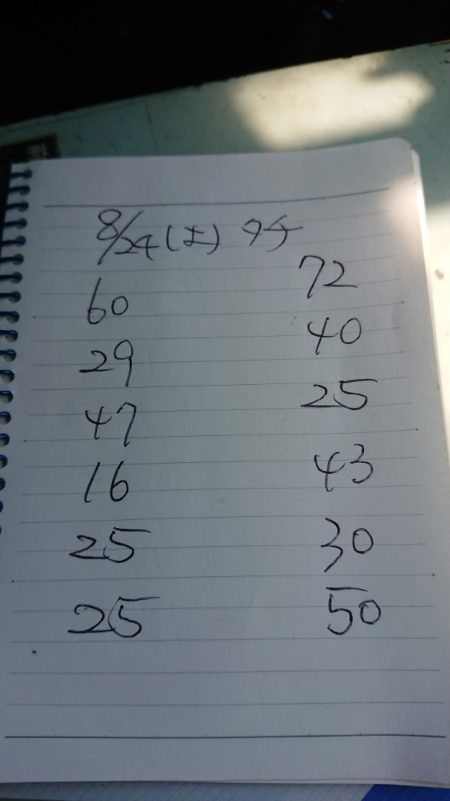 8/24(土) タチ
60 72
29 40
47 25
16 43
25 30
25 50